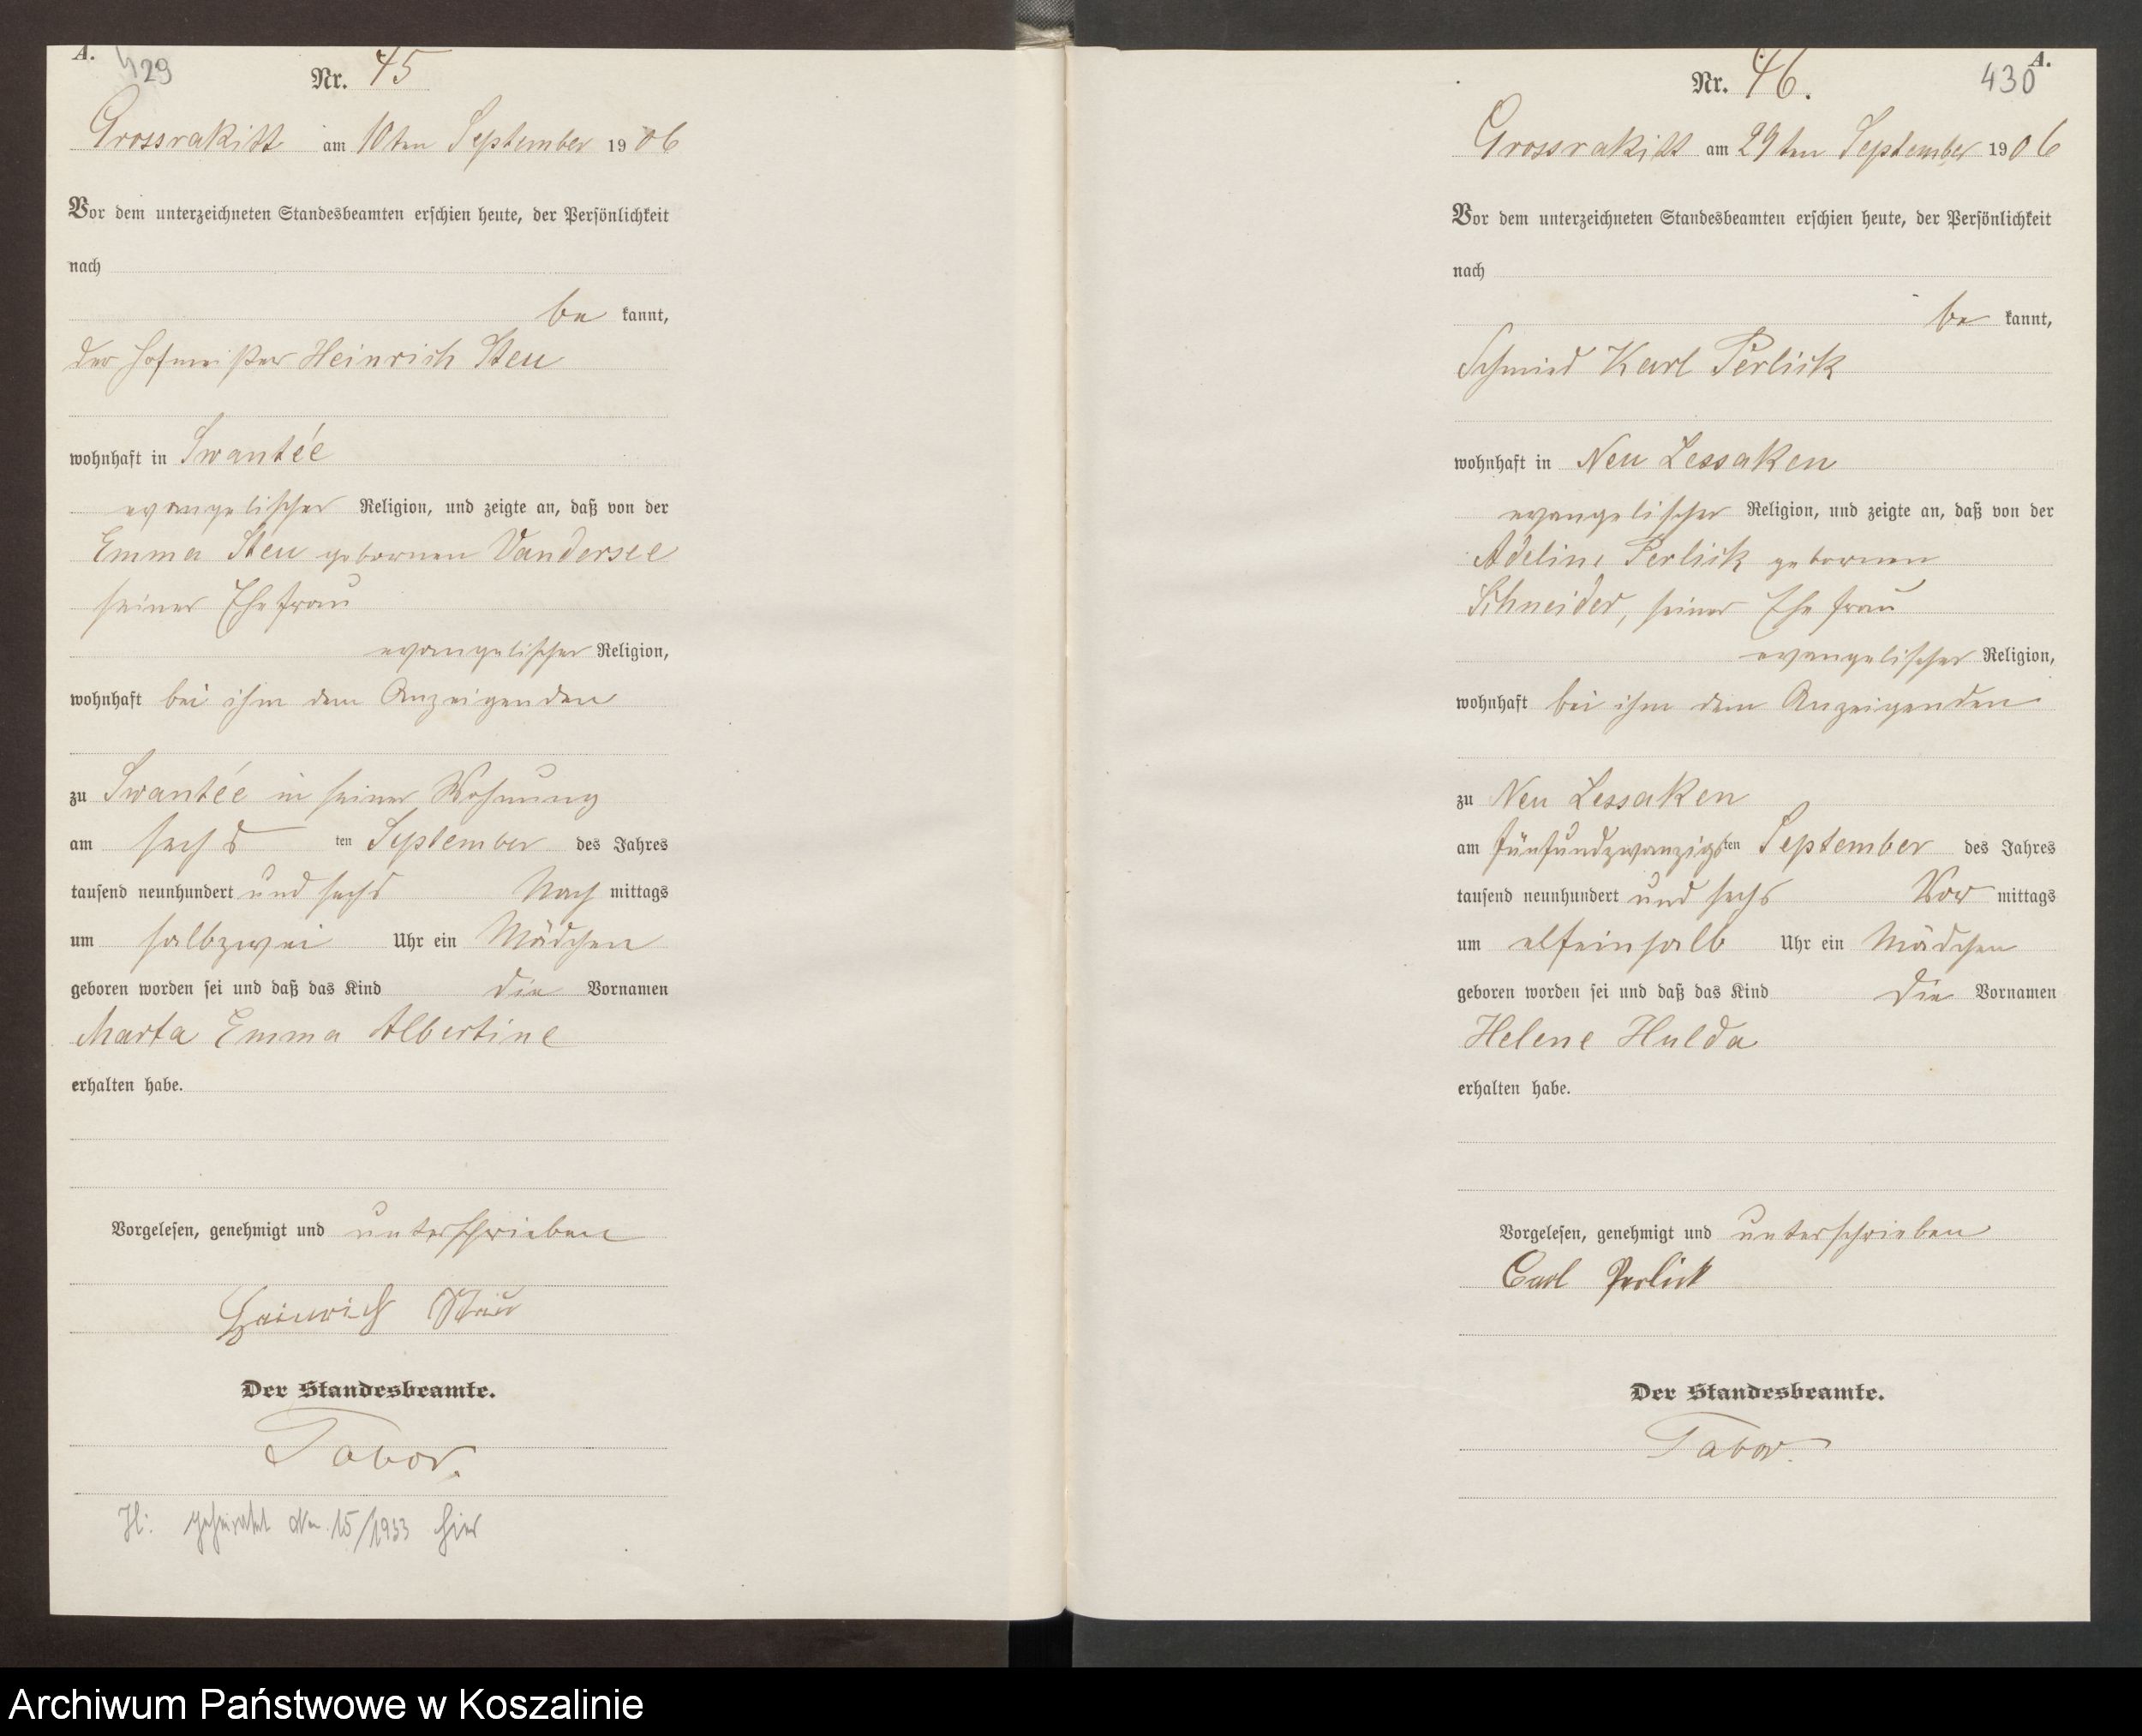 A.
429
Nr. 45
Grossrakitt am 10ten September 1906
Vor dem unterzeichneten Standesbeamten erschien heute, der Persönlichkeit
nach
be kannt,
der Hofmeister Heinrich Steu
wohnhaft in Swantée
evangelischer Religion, und zeigte an, daß von der
Emma Steu gebornen Vandersee
seiner Ehefrau
evangelischer Religion,
wohnhaft bei ihm dem Anzeigenden
zu Swantée in seiner Wohnung
am sechs ten September des Jahres
tausend neunhundert und sechs Nach mittags
um halbzwei Uhr ein Mädchen
geboren worden sei und daß das Kind die Vornamen
Marta Emma Albertine
erhalten habe.
Vorgelesen, genehmigt und unterschrieben
Heinrich Steu
Der Standesbeamte.
Tabor.
H: geheiratet Nr. 15/1933 hier
A.
430
Nr. 46.
Grossrakitt am 29ten September 1906
Vor dem unterzeichneten Standesbeamten erschien heute, der Persönlichkeit
nach
be kannt,
Schmied Karl Perlick
wohnhaft in Neu Lessaken
evangelischer Religion, und zeigte an, daß von der
Adeline Perlick gebornen
Schneider, seiner Ehefrau
evangelischer Religion,
wohnhaft bei ihm dem Anzeigenden
zu Neu Lessaken
am fünfundzwanzigsten September des Jahres
tausend neunhundert und sechs Vor mittags
um elfeinhalb Uhr ein Mädchen
geboren worden sei und daß das Kind die Vornamen
Helene Hulda
erhalten habe.
Vorgelesen, genehmigt und unterschrieben
Carl Perlick
Der Standesbeamte.
Tabor.
Archiwum Państwowe w Koszalinie